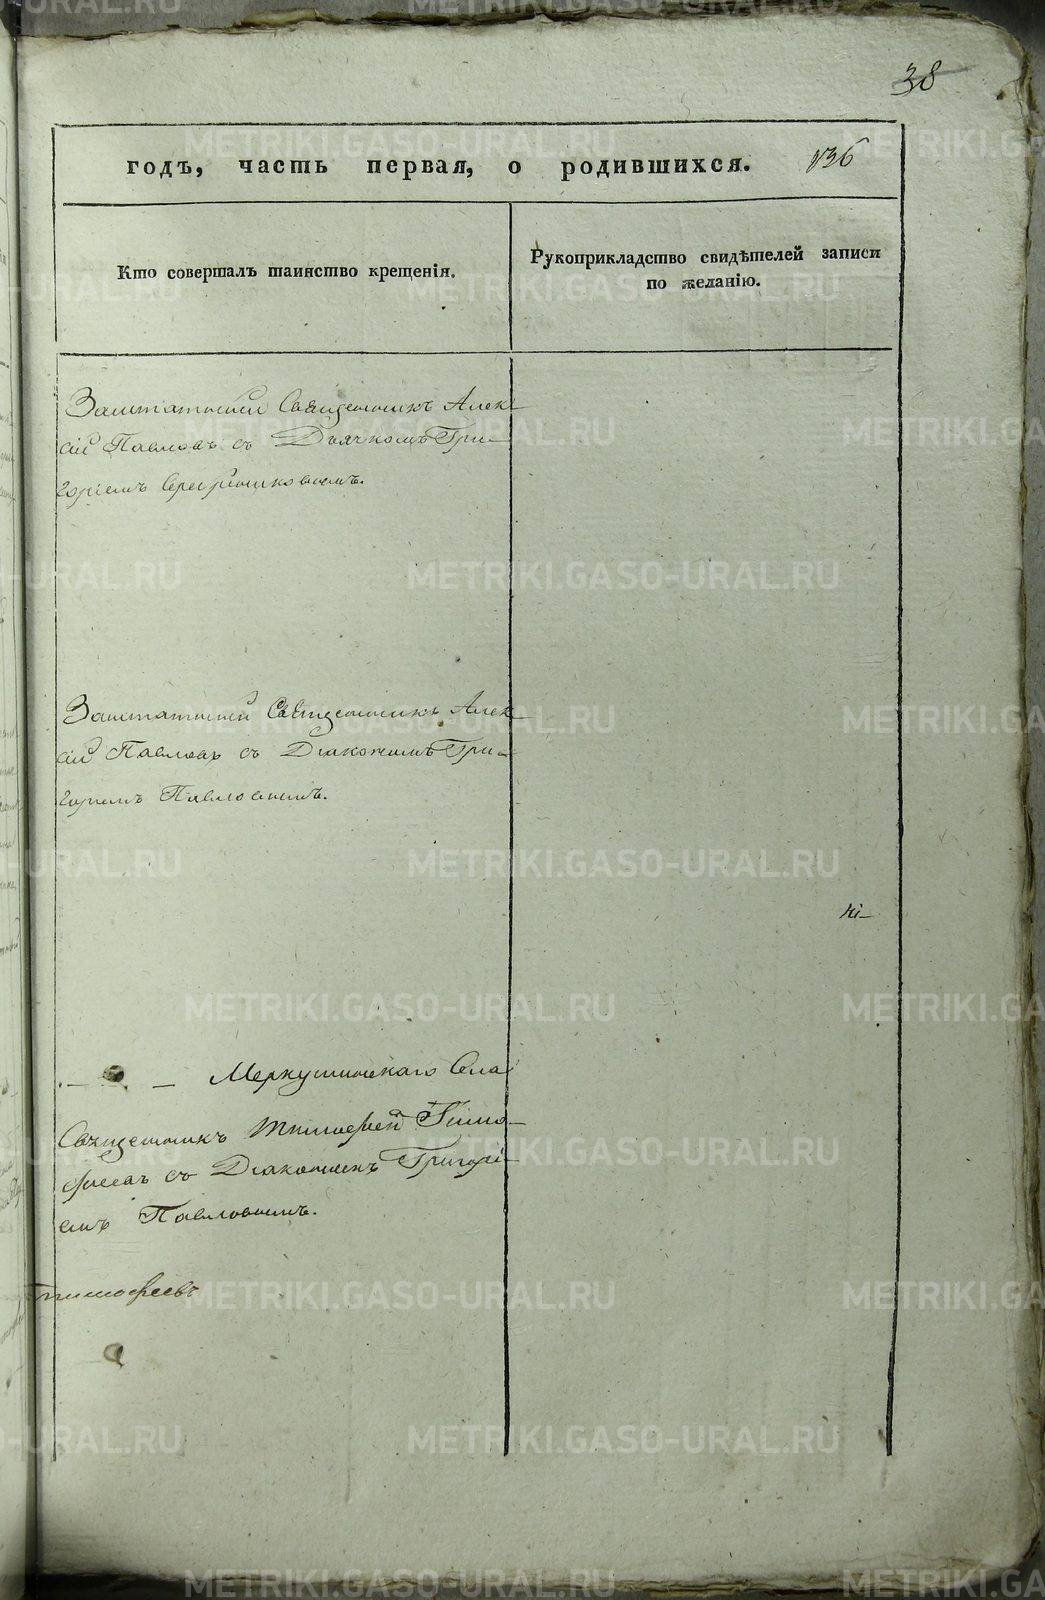 38
годъ, часть первая, о родившихся. 136
Кто совершалъ таинство крещенія.
Рукоприкладство свидѣтелей записи
по желанію.
Заштатный Священникъ Алек-
сій Павловъ съ Дьячкомъ Гри-
горіемъ Серебрениковымъ.
Заштатный Священникъ Алек-
сій Павловъ съ Діакономъ Гри-
горіемъ Павловымъ.
Меркушинскаго Села
Священникъ Тимофей Тимо-
феевъ съ Діакономъ Григорі-
емъ Павловымъ.
Тимофеевъ
METRIKI.GASO-URAL.RU